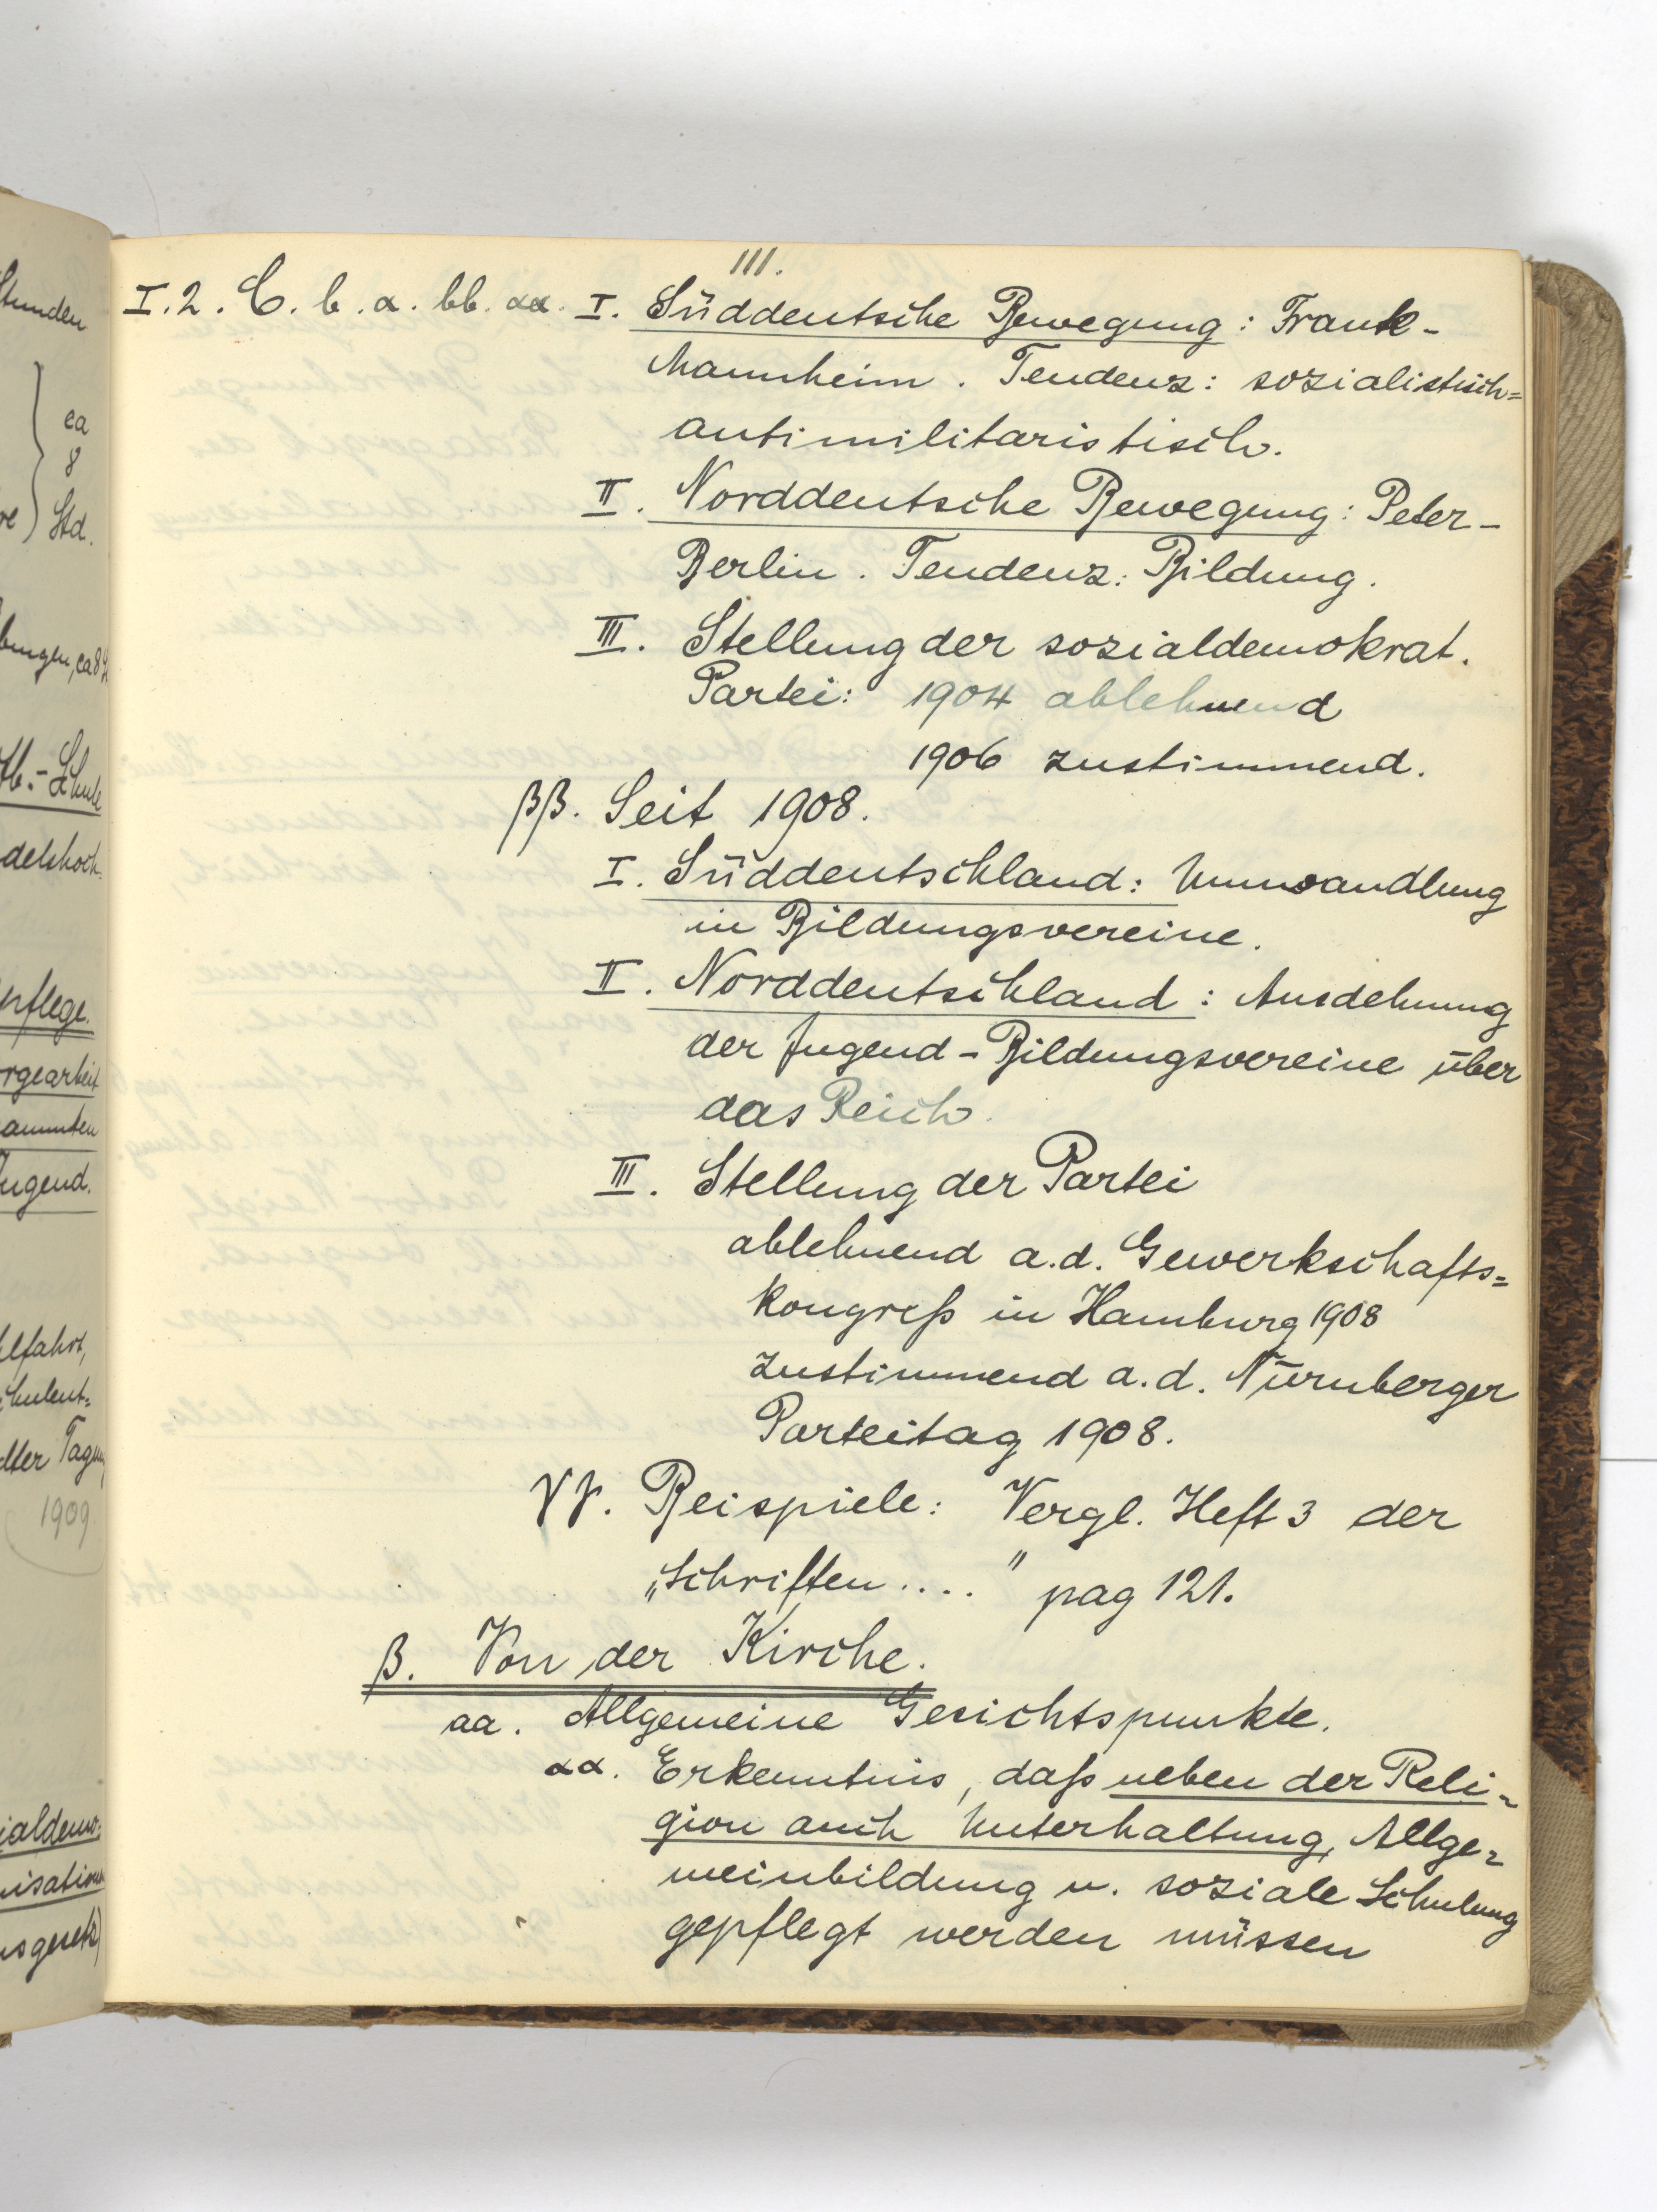 111.
I. 2. C. b. α. bb. αα. I. Süddeutsche Bewegung: Frank-
Mannheim. Tendenz: sozialistisch=
antimilitaristisch.
II. Norddeutsche Bewegung: Peter-
Berlin. Tendenz: Bildung.
III. Stellung der sozialdemokrat.
Partei: 1904 ablehnend
1906 zustimmend.
ββ. Seit 1908.
I. Süddeutschland: Umwandlung
in Bildungsvereine.
II. Norddeutschland: Ausdehnung
der Jugend-Bildungsvereine über
das Reich.
III. Stellung der Partei
ablehnend a.d. Gewerkschafts=
kongreß in Hamburg 1908
zustimmend a.d. Nürnberger
Parteitag 1908.
γγ. Beispiele: Vergl. Heft 3 der
„Schriften...." pag 121.
β. Von der Kirche.
aa. Allgemeine Gesichtspunkte.
αα. Erkenntnis, daß neben der Reli-
gion auch Unterhaltung, Allge=
meinbildung u. soziale Schulung
gepflegt werden müssen
Stunden
ca
8
Std.
Schule
pflege.
Jugend.
1909